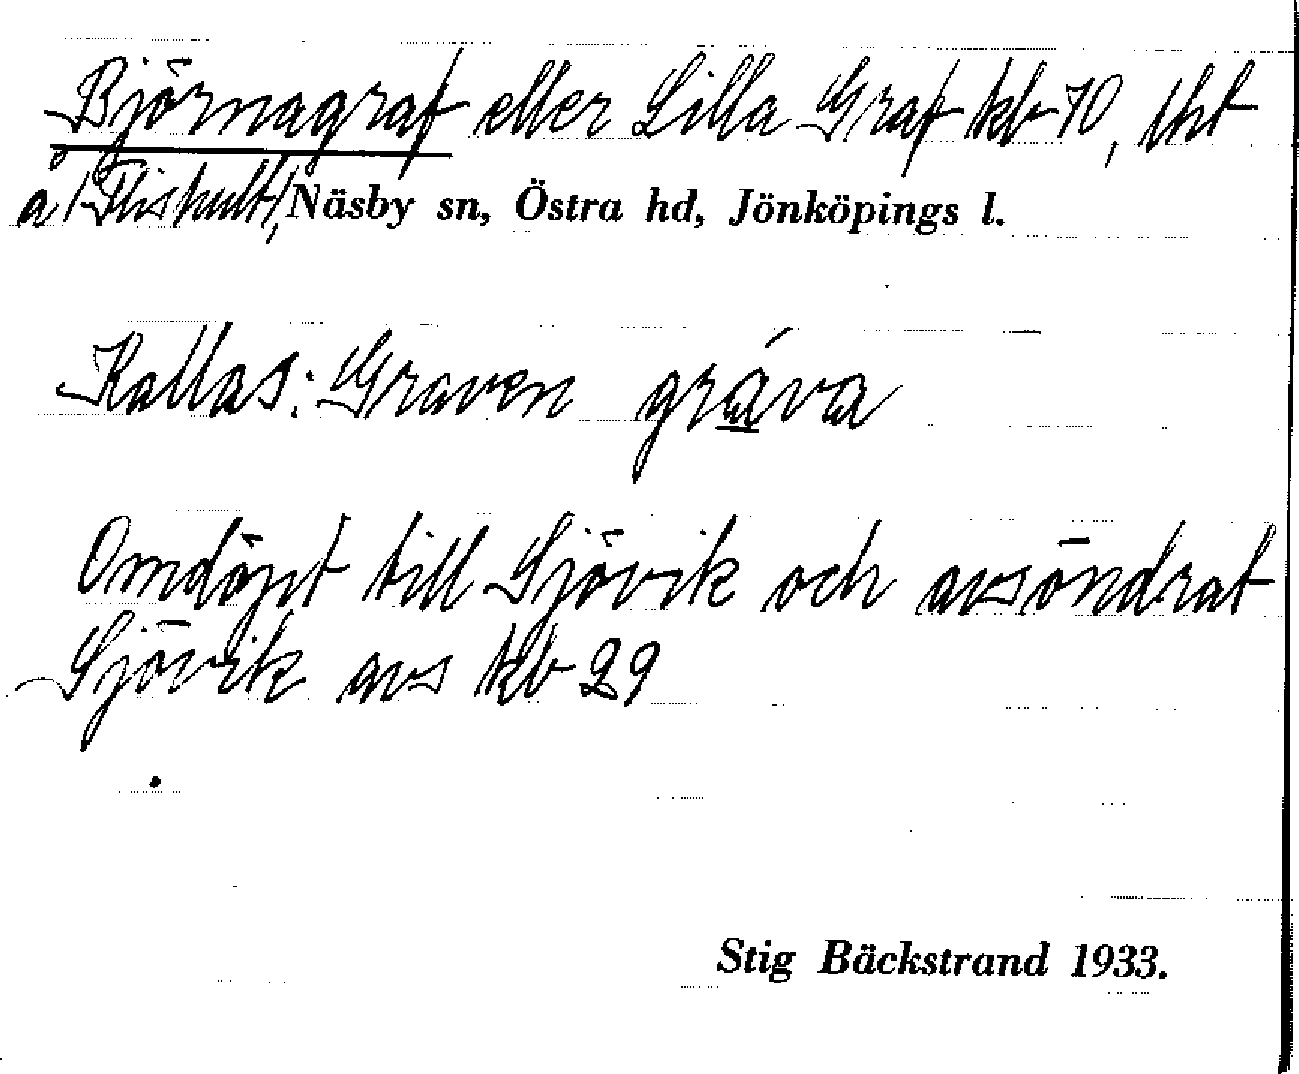 Björnagraf eller Lilla Graf kb 70, tht
å /Flishult/, Näsby sn, Östra hd, Jönköpings l.
Kallas: Graven gráva
Omdöpt till Sjövik och avsöndrat
Sjövik avs kb 29
Stig Bäckstrand 1933.